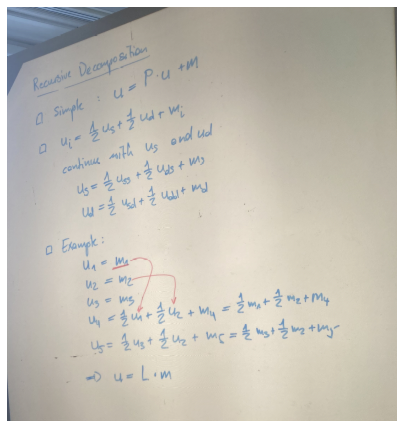 Recursive Decomposition
□ Simple : u = P·u + m
□ uᵢ = 1/2 uₛ + 1/2 u_d + mᵢ
continue with uₛ and u_d
uₛ = 1/2 uₛₛ + 1/2 u_ds + mₛ
u_d = 1/2 u_sd + 1/2 u_dd + m_d
□ Example:
u₁ = m₁
u₂ = m₂
u₃ = m₃
u₄ = 1/2 u₁ + 1/2 u₂ + m₄ = 1/2 m₁ + 1/2 m₂ + m₄
u₅ = 1/2 u₃ + 1/2 u₂ + m₅ = 1/2 m₃ + 1/2 m₂ + m₅
⇒ u = L·m